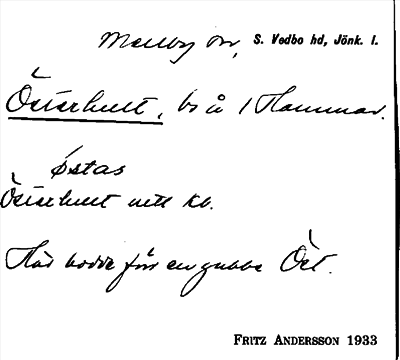 Mellby sn, S. Vedbo hd, Jönk. l.
Österhult, bs å 1 Hammar.
Östas
Österhult nett kb.
Här bodde förr en gubbe Öst.
FRITZ ANDERSSON 1933